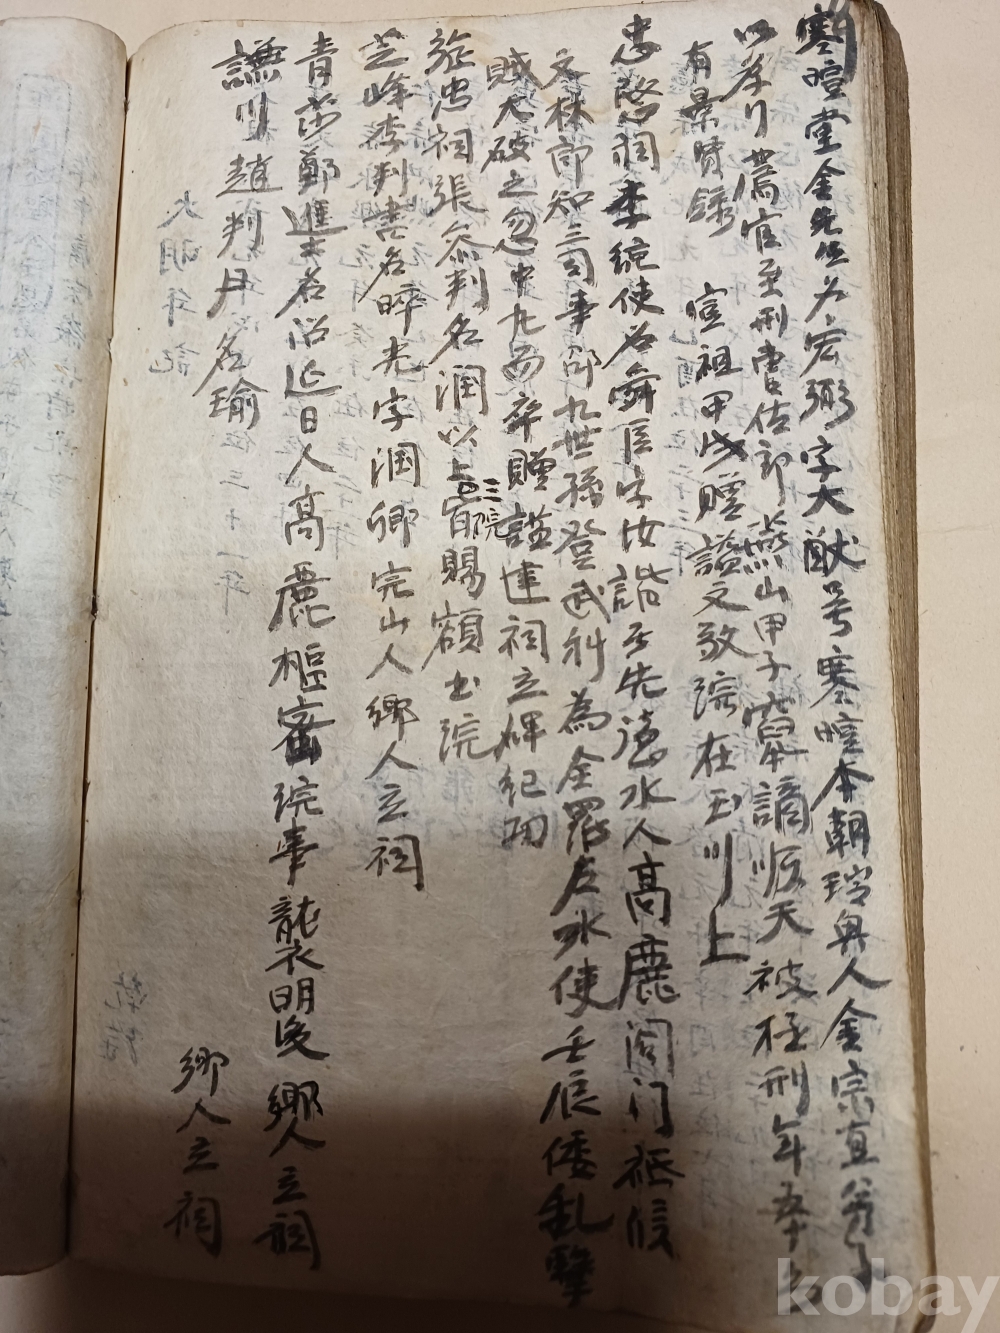 寒暄堂金先生名宏弼字大猷号寒暄本朝瑞興人金宗直門
以孝行薦官至刑曹佐郎燕山甲子竄謫順天被極刑年五十
有景賢錄 宣祖甲戌贈諡文敬院在玉川上
忠愍祠李統使名舜臣字汝諧其先德水人高麗閤门祗候
文林郎知三司事邵九世孫登武科為全羅左水使壬辰倭乱擊
賊大破之忽中丸而卒贈諡建祠立碑纪功
旌忠祠張參判名潤以上三院皆賜額书院
芝峰李判書名晬光字潤卿完山人鄉人立祠
青莎鄭進士名沼延日人高麗樞密院事襲明後 鄉人立祠
謙川趙判尹名瑜 鄉人立祠
大明年記
kobay